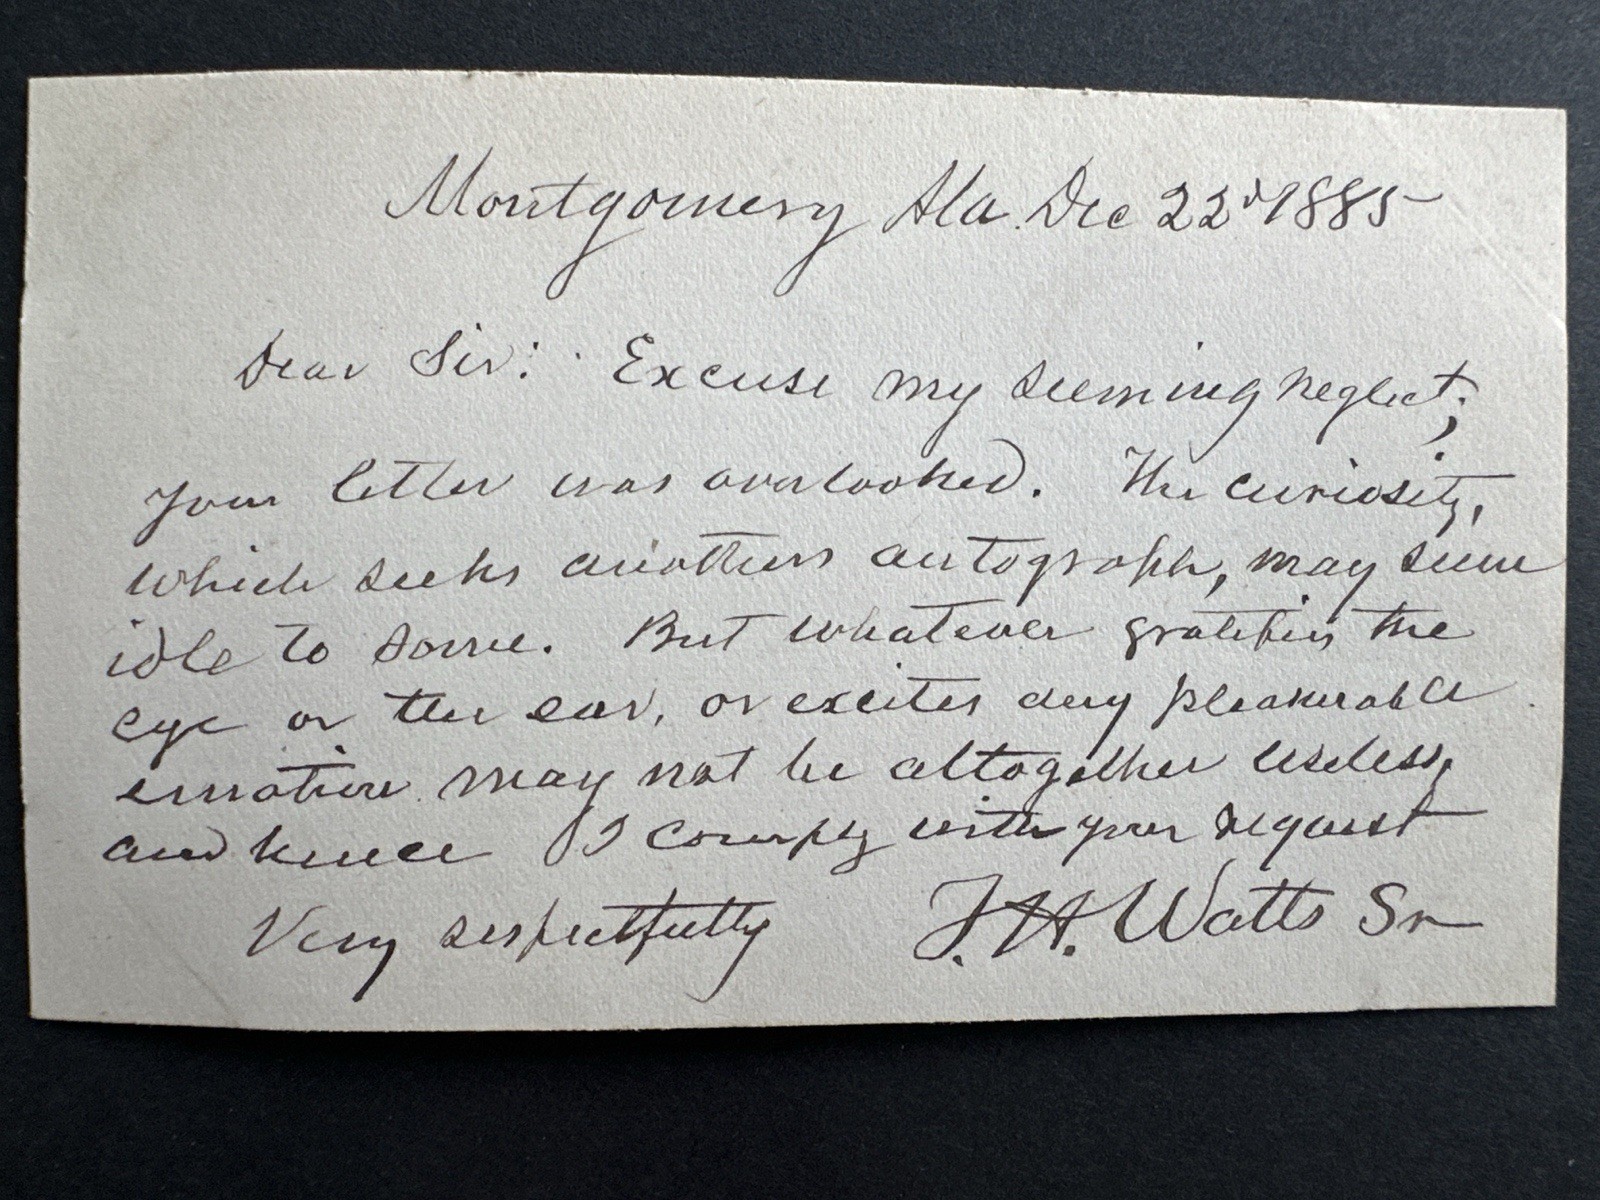 Montgomery Ala. Dec 22d 1885
Dear Sir: Excuse my seeming neglect;
your letter was overlooked. The curiosity,
which seeks anothers autograph, may seem
idle to some. But whatever gratifies the
eye or the ear, or excites any pleasurable
emotion may not be altogether useless,
and hence I comply with your request
Very respectfully T. H. Watts Sr